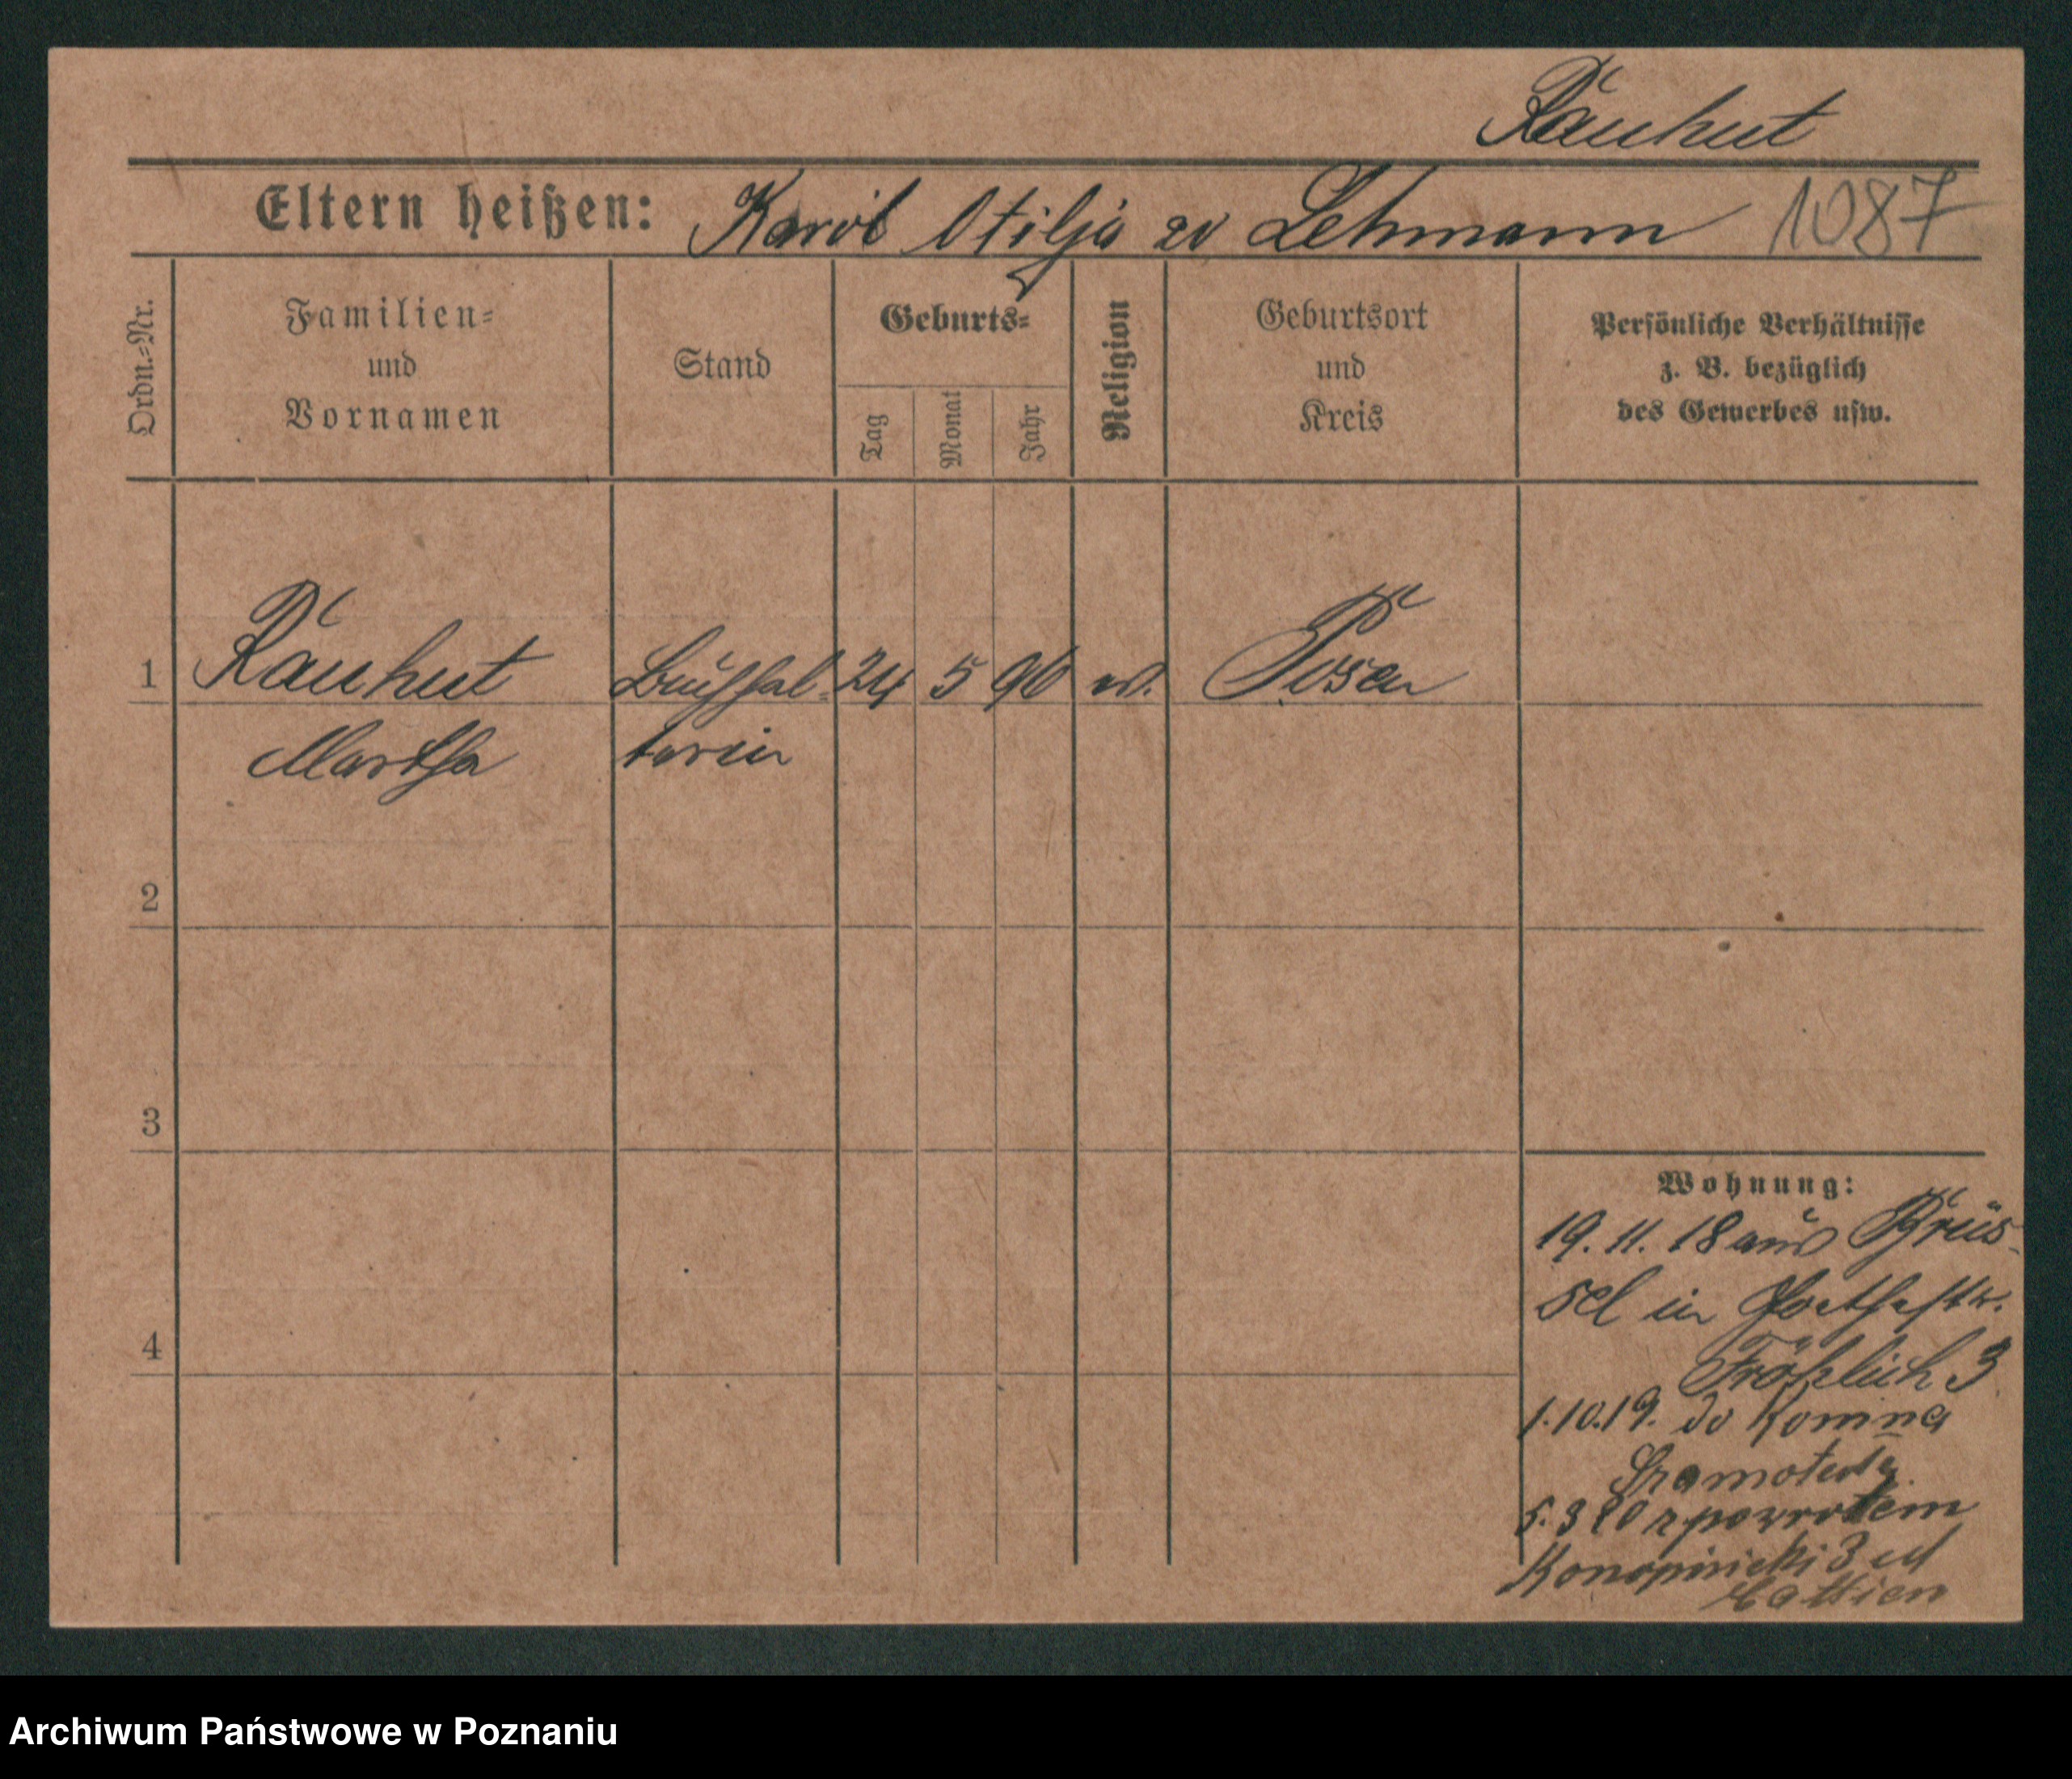 Rauhut
Eltern heißen: Karol Otilja zd Lehmann 1087
Ordn.-Nr.
Familien- und Vornamen
Stand
Geburts-
Tag
Monat
Jahr
Religion
Geburtsort und Kreis
Persönliche Verhältnisse
z. B. bezüglich
des Gewerbes usw.
1 Rauhut Buchhal- 24 5 96 ev. Posen
Martha terin
2
3
4
Wohnung:
19. 11. 18 aus Brüs-
sel in Goethestr.
Fröhlich 3
1.10.19. do
5. 3 20 z powrotem
3
Archiwum Państwowe w Poznaniu